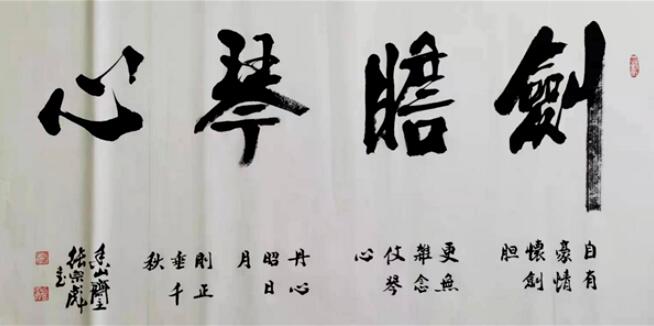 劍膽琴心
自有
豪情
懷劍
胆
更無
雜念
伎琴
心
丹心
昭日
月
剛正
垂千
秋
山齋主
張宗彪
書